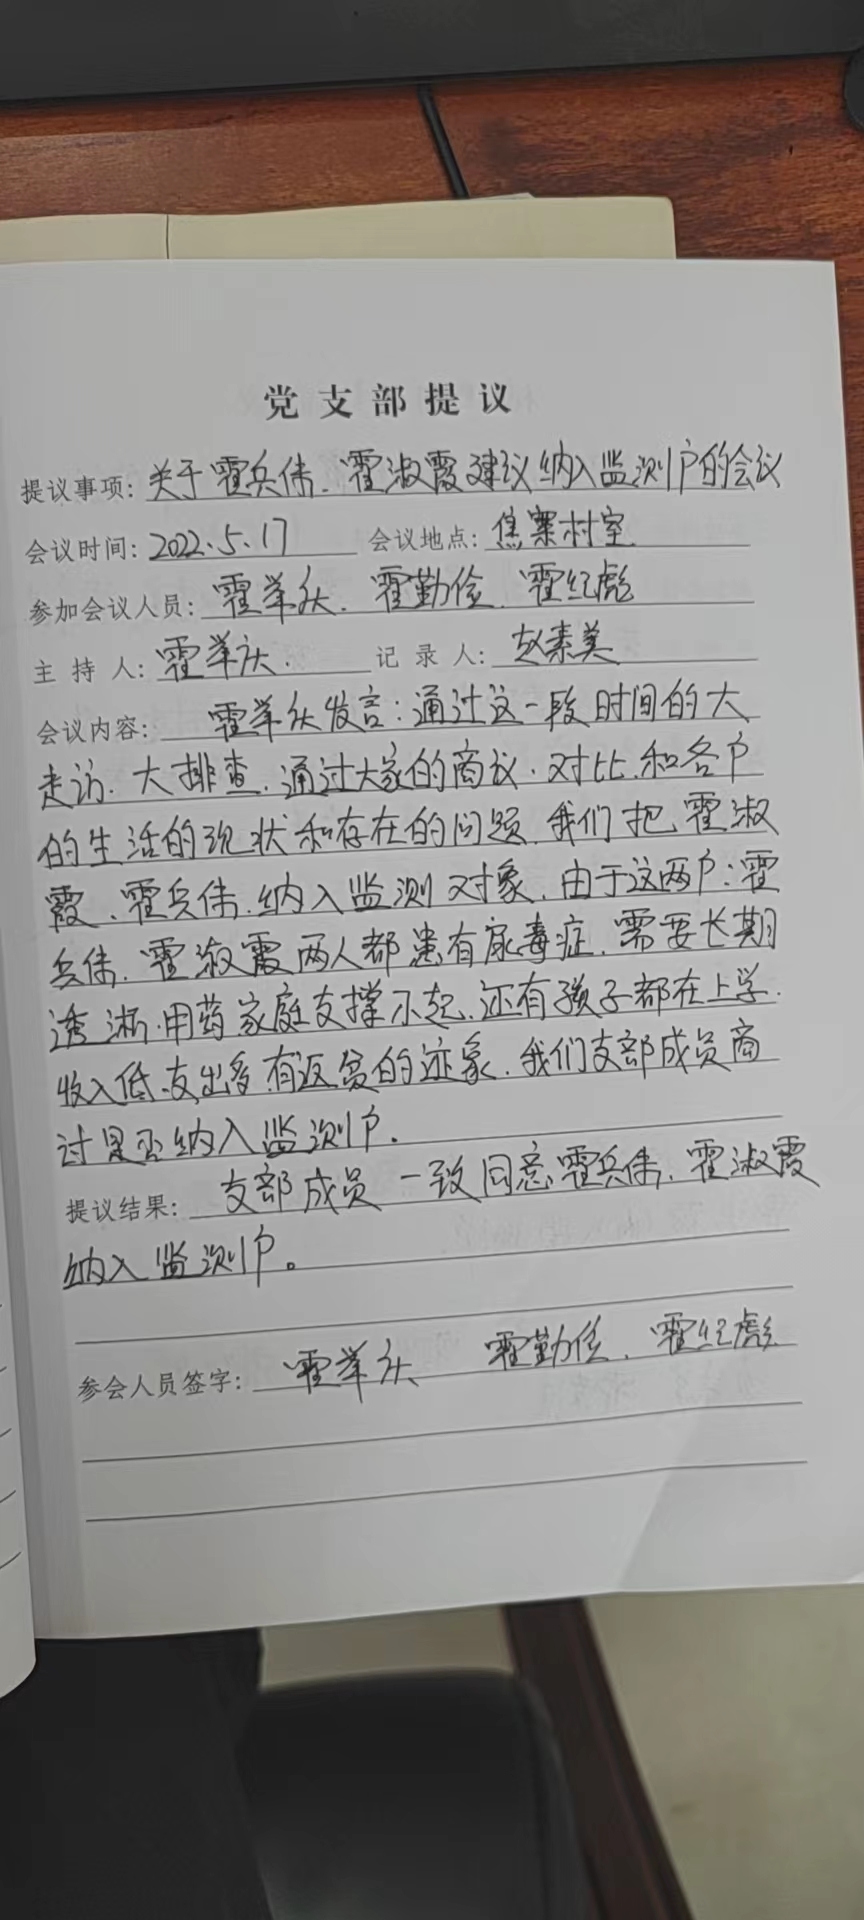 党支部提议
提议事项: 关于霍兵伟、霍淑霞建议纳入监测户的会议
会议时间: 2022.5.17 会议地点: 焦寨村室
参加会议人员: 霍举庆、霍勤俭、霍纪彪
主持人: 霍举庆. 记录人: 赵素美
会议内容: 霍举庆发言:通过这一段时间的大
走访、大排查、通过大家的商议、对比、和各户
的生活的现状和存在的问题、我们把霍淑
霞、霍兵伟、纳入监测对象、由于这两户:霍
兵伟、霍淑霞两人都患有尿毒症、需要长期
透淅、用药家庭支撑不起、还有孩子都在上学.
收入低、支出多有返贫的迹象、我们支部成员商
讨是否纳入监测户.
提议结果: 支部成员一致同意霍兵伟、霍淑霞
纳入监测户。
参会人员签字: 霍举庆 霍勤俭、霍纪彪